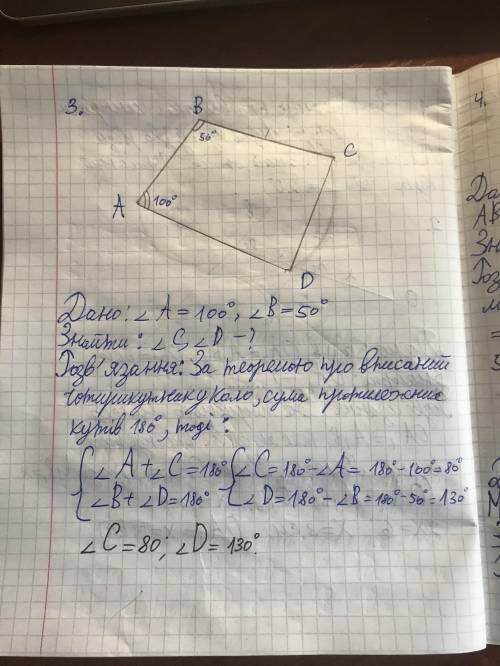 3.
B
50°
C
A
100°
D
Дано: ∠A = 100°, ∠B = 50°
Знайти: ∠C, ∠D - ?
Розв'язання: За теоремою про вписаний
чотирикутник у коло, сума протилежних
кутів 180°, тоді:
{∠A + ∠C = 180° {∠C = 180° - ∠A = 180° - 100° = 80°
{∠B + ∠D = 180° {∠D = 180° - ∠B = 180° - 50° = 130°
∠C = 80; ∠D = 130°.
4.
Да
AB
Зн
Роз
=